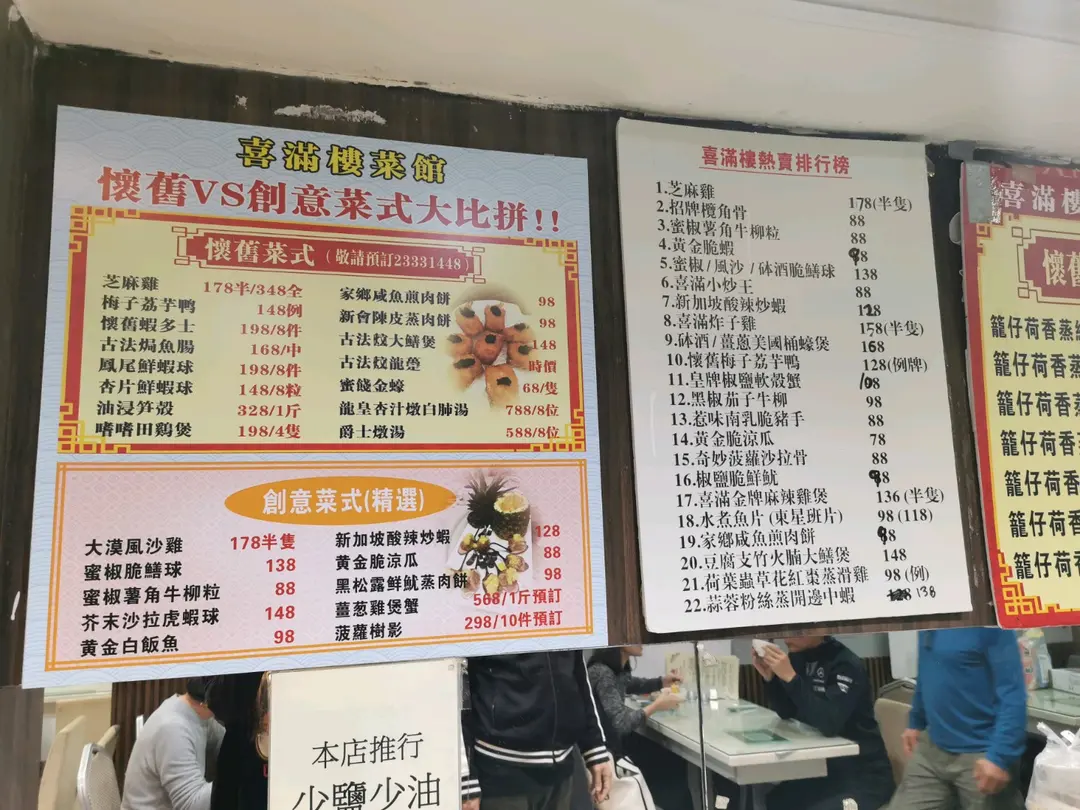 喜滿樓菜館
懷舊VS創意菜式大比拼!!
懷舊菜式(敬請預訂23331448)
芝麻雞 178半/348全
梅子荔芋鴨 148例
懷舊蝦多士 198/8件
古法焗魚腸 168/中
鳳尾鮮蝦球 198/8件
杏片鮮蝦球 148/8粒
油浸笋殼 328/1斤
嗜嗜田鷄煲 198/4隻
家鄉咸魚煎肉餅 98
新會陳皮蒸肉餅 98
古法炆大鱔煲 148
古法炆龍躉 時價
蜜餞金蠔 68/隻
龍皇杏汁燉白肺湯 788/8位
爵士燉湯 588/8位
創意菜式(精選)
大漠風沙雞 178半隻
蜜椒脆鱔球 138
蜜椒薯角牛柳粒 88
芥末沙拉虎蝦球 148
黃金白飯魚 98
新加坡酸辣炒蝦 128
黃金脆涼瓜 88
黑松露鮮魷蒸肉餅 98
薑葱雞煲蟹 568/1斤預訂
菠蘿樹影 298/10件預訂
喜滿樓熱賣排行榜
1.芝麻雞 178(半隻)
2.招牌欖角骨 88
3.蜜椒薯角牛柳粒 88
4.黃金脆蝦 98
5.蜜椒/風沙/砵酒脆鱔球 138
6.喜滿小炒王 88
7.新加坡酸辣炒蝦 128
8.喜滿炸子雞 158(半隻)
9.砵酒/薑蔥美國桶蠔煲 168
10.懷舊梅子荔芋鴨 128(例牌)
11.皇牌椒鹽軟殼蟹 108
12.黑椒茄子牛柳 98
13.惹味南乳脆豬手 88
14.黃金脆涼瓜 78
15.奇妙菠蘿沙拉骨 88
16.椒鹽脆鮮魷 98
17.喜滿金牌麻辣雞煲 136(半隻)
18.水煮魚片(東星班片) 98(118)
19.家鄉咸魚煎肉餅 98
20.豆腐支竹火腩大鱔煲 148
21.荷葉蟲草花紅棗蒸滑雞 98(例)
22.蒜蓉粉絲蒸開邊中蝦 128 138
喜滿樓
懷舊
籠仔荷香蒸
籠仔荷香蒸
籠仔荷香蒸
籠仔荷香蒸
籠仔荷香蒸
籠仔荷香蒸
籠仔荷香蒸
本店推行
少鹽少油